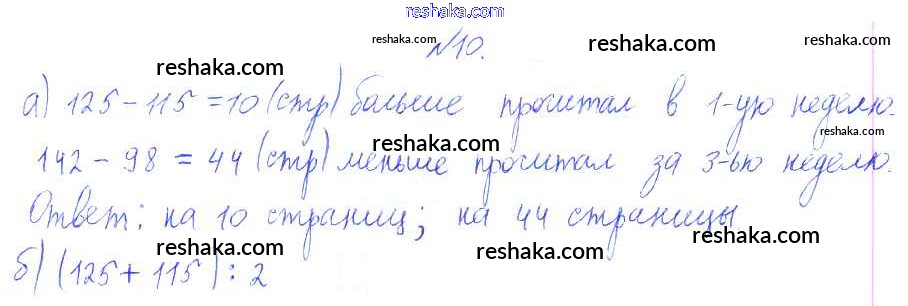 reshaka.com
reshaka.com №10. reshaka.com reshaka.com
reshaka.com
а) 125 - 115 = 10 (стр) больше прочитал в 1-ую неделю.
reshaka.com reshaka.com
142 - 98 = 44 (стр) меньше прочитал за 3-ью неделю.
reshaka.com
Ответ: на 10 страниц; на 44 страницы
reshaka.com reshaka.com
б) (125 + 115) : 2
reshaka.com